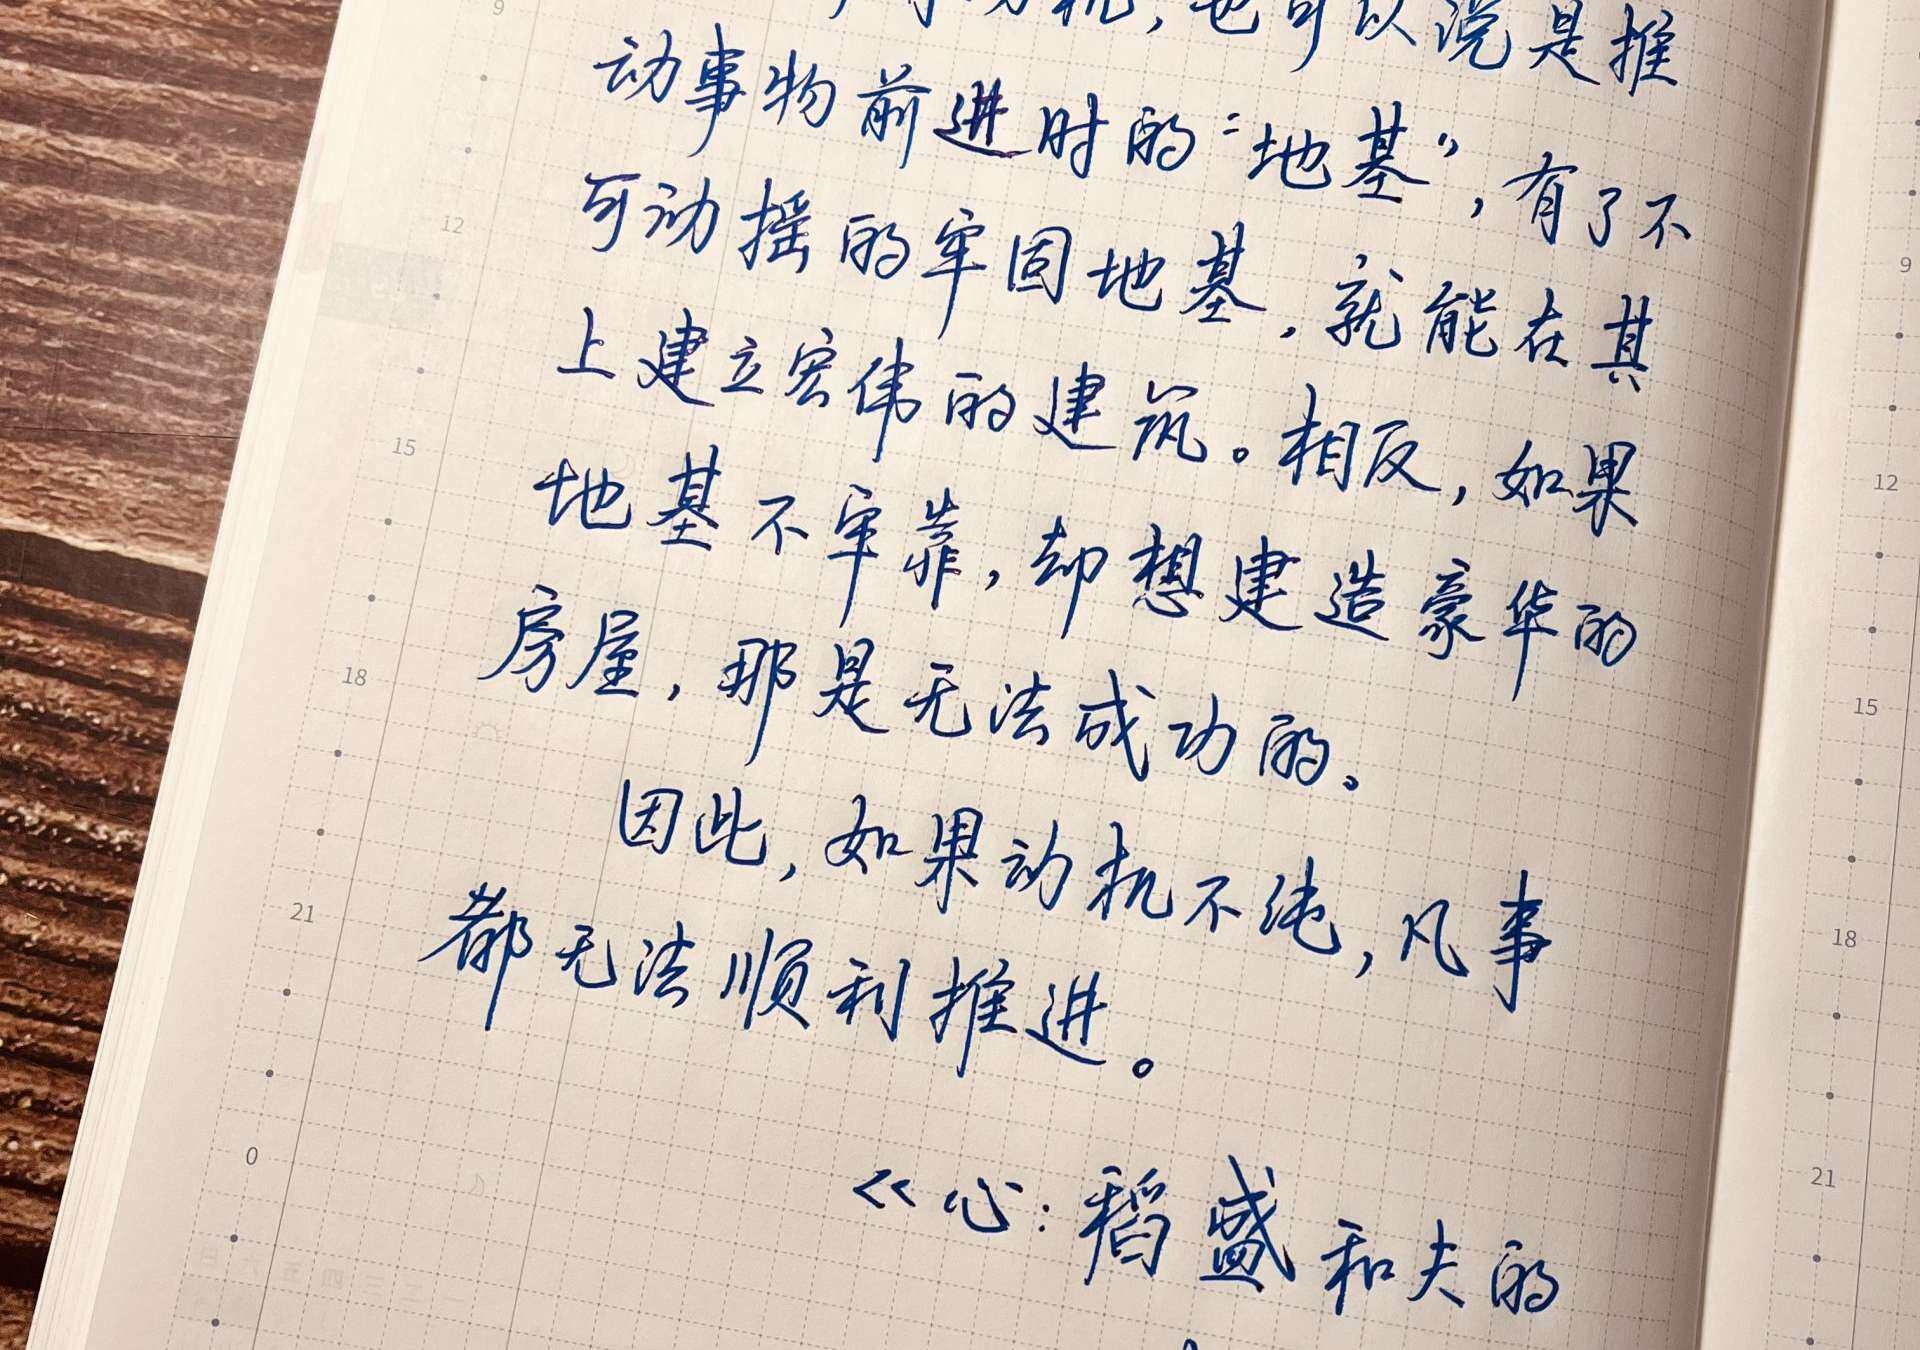 机，也可以说是推
动事物前进时的“地基”，有了不
可动摇的牢固地基，就能在其
上建立宏伟的建筑。相反，如果
地基不牢靠，却想建造豪华的
房屋，那是无法成功的。
因此，如果动机不纯，凡事
都无法顺利推进。
《心：稻盛和夫的
9
12
15
18
21
0
9
12
15
18
21